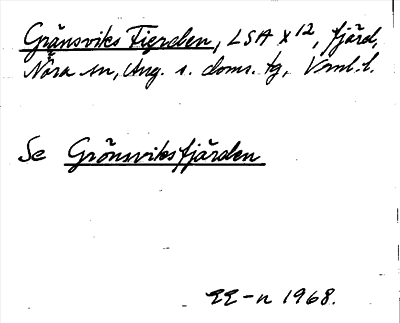 Gränsviks Fierden, LSA X 12, fjärd,
Nora sn, Ång. s. doms. tg, Vnrl. l.
Se Grönsviksfjärden
EE-n 1968.